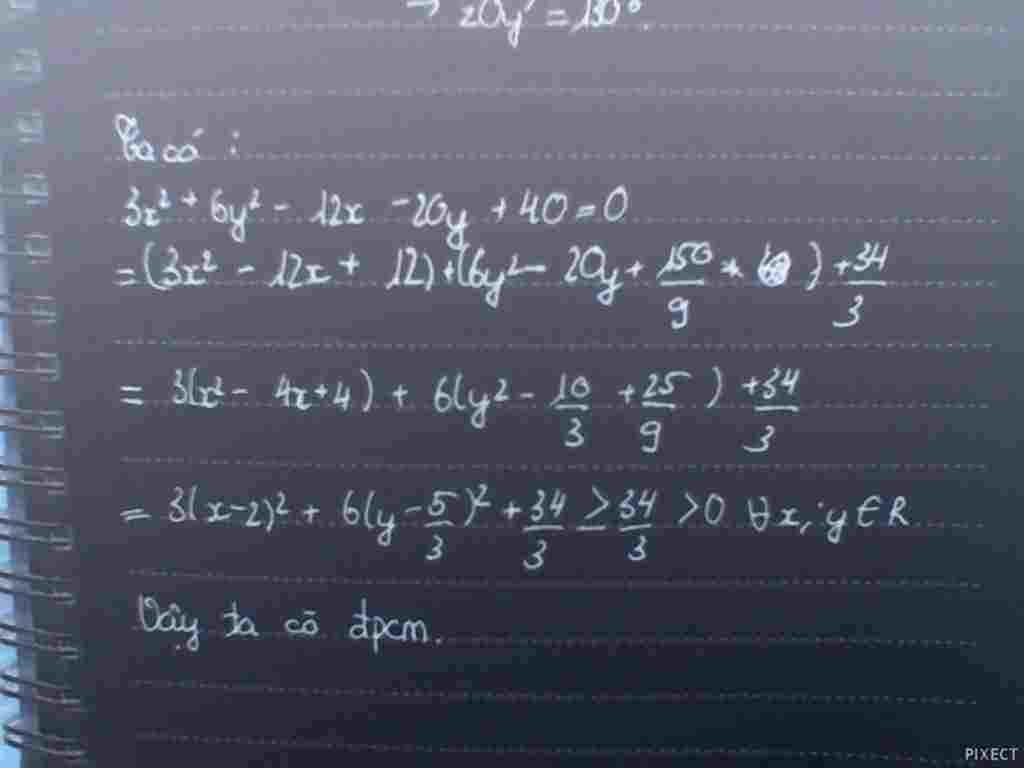 → 20y' = 130°.
Ta có :
3x² + 6y² - 12x - 20y + 40 = 0
= (3x² - 12x + 12) + (6y² - 20y + 150/9 ) + 34/3
= 3(x² - 4x + 4) + 6(y² - 10/3 + 25/9 ) + 34/3
= 3(x-2)² + 6(y - 5/3)² + 34/3 ≥ 34/3 > 0 ∀x, y ∈ R
Vậy ta có đpcm.
PIXECT